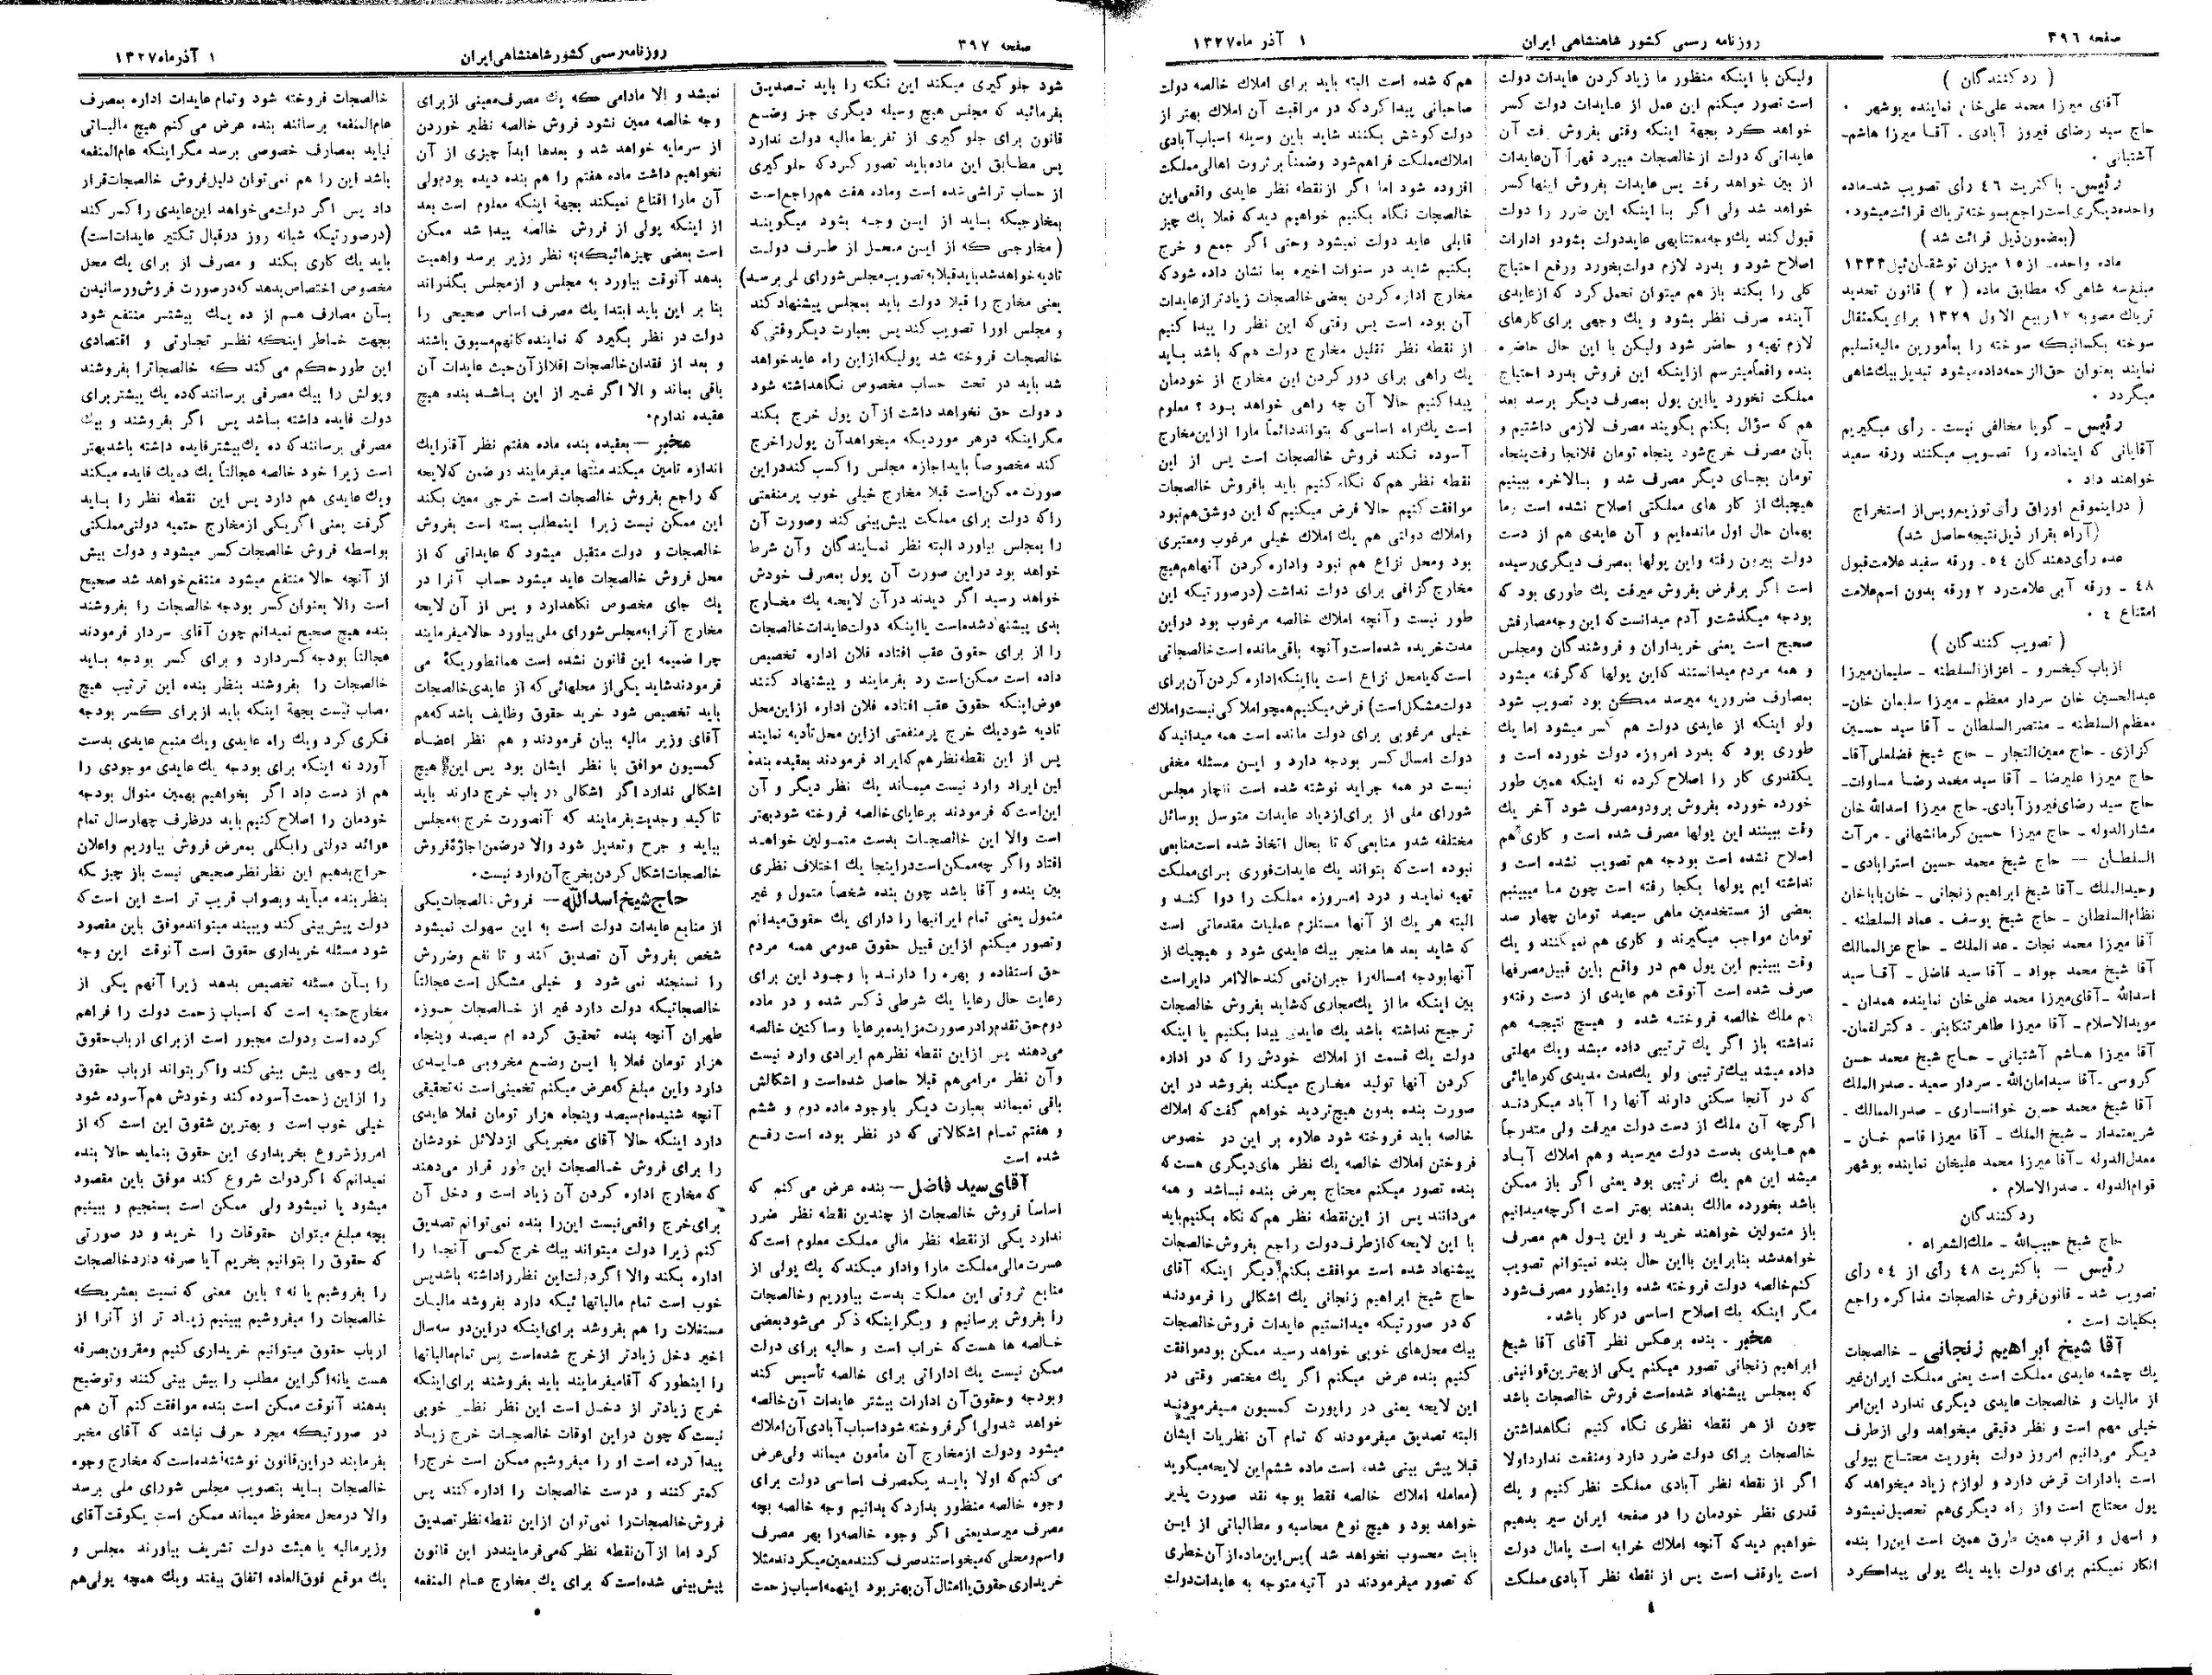 صفحه ۳۹۶
روزنامه رسمی کشور شاهنشاهی ایران
۱ آذر ماه ۱۳۲۷
( ردکنندگان )
آقای میرزا محمد علی‌خان نماینده بوشهر ۰
حاج سید رضای فیروز آبادی ـ آقا میرزا هاشم-
آشتیانی ۰
رئیس ـ با کثریت ٤٦ رأی تصویب شد ـ ماده
واحده دیگری است راجع بسوخته تریاك قرائت میشود۰
(بمضمون ذیل قرائت شد )
ماده واحده ـ از ۱۵ میزان توشقان‌ئیل ۱۳۳۳
مبلغ سه شاهی که مطابق ماده ( ۲ ) قانون تحدید
تریاك مصوبه ۱۲ ربیع الاول ۱۳۲۹ برای یکمثقال
سوخته بکسانیکه سوخته را بمأمورین مالیه تسلیم
نمایند بعنوان حق‌الزحمه داده میشود تبدیل بیك‌شاهی
میگردد ۰
رئیس ـ گویا مخالفی نیست ـ رأی میگیریم
آقایانی که اینماده را تصویب میکنند ورقه سفید
خواهند داد ۰
( دراینموقع اوراق رأی توزیع و پس از استخراج
(آراء بقرار ذیل نتیجه حاصل شد)
عده رأی‌دهندکان ٥٤ ـ ورقه سفید علامت قبول
٤٨ ـ ورقه آبی علامت رد ۲ ورقه بدون اسم علامت
امتناع ٤ ۰
( تصویب کنندگان )
ارباب کیخسرو ـ اعزاز السلطنه ـ سلیمان میرزا
عبدالحسین خان سردار معظم ـ میرزا سلیمان خان-
معظم السلطنه ـ منتصر السلطان ـ آقا سید حسین
کزازی ـ حاج معین‌التجار ـ حاج شیخ فضلعلی آقا-
حاج میرزا علیرضا ـ آقا سید محمد رضا مساوات-
حاج سید رضای فیروزآبادی ـ حاج میرزا اسدالله خان
مشارالدوله ـ حاج میرزا حسین کرمانشهانی ـ مرآت
السلطان — حاج شیخ محمد حسین استرابادی ـ
وحیدالملك ـ آقا شیخ ابراهیم زنجانی ـ خان‌باباخان
نظام‌السلطان ـ حاج شیخ یوسف ـ عماد السلطنه ـ
آقا میرزا محمد نجات ـ عدالملك ـ حاج عزالممالك
آقا شیخ محمد جواد ـ آقا سید فاضل ـ آقا سید
اسدالله ـ آقای میرزا محمد علی‌خان نماینده همدان ـ
مویدالاسلام ـ آقا میرزا طاهر تنکابنی ـ دکتر لقمان-
آقا میرزا هاشم آشتیانی ـ حاج شیخ محمد حسن
گروسی ـ آقا سیدامان‌الله ـ سردار سعید ـ صدرالملك
آقا شیخ محمد حسن خوانساری ـ صدرالممالك ـ
شریعتمدار ـ شیخ الملك ـ آقا میرزا قاسم خان ـ
معدل‌الدوله ـ آقا میرزا محمد علیخان نماینده بوشهر
قوام‌الدوله ـ صدرالاسلام ۰
ردکنندگان
حاج شیخ حبیب‌الله ـ ملك‌الشعراء ۰
رئیس — باکثریت ٤٨ رأی از ٥٤ رأی
تصویب شد ـ قانون فروش خالصجات مذاکره راجع
بکلیات است ۰
آقا شیخ ابراهیم زنجانی ـ خالصجات
یك چشمه عایدی مملکت است یعنی مملکت ایران غیر
از مالیات و خالصجات عایدی دیگری ندارد این امر
خیلی مهم است و نظر دقیقی میخواهد ولی از طرف
دیگر می‌دانیم امروز دولت بفوریت محتاج بپولی
است بادارات قرض دارد و لوازم زیاد میخواهد که
پول محتاج است واز راه دیگری‌هم تحصیل نمیشود
و اسهل و اقرب همین طرق همین است این را بنده
انکار نمیکنم برای دولت باید یك پولی پیدا کرد
ولیکن با اینکه منظور ما زیاد کردن عایدات دولت
است تصور میکنم این عمل از عایدات دولت کسر
خواهد کرد بجهة اینکه وقتی بفروش رفت آن
عایداتی که دولت از خالصجات میبرد قهراً آن عایدات
از بین خواهد رفت پس عایدات بفروش اینها کسر
خواهد شد ولی اگر با اینکه این ضرر را دولت
قبول کند یك وجه معتنابهی عاید دولت بشود و ادارات
اصلاح شود و بدرد لازم دولت بخورد ورفع احتیاج
کلی را بکند باز هم میتوان تحمل کرد که از عایدی
آینده صرف نظر بشود و یك وجهی برای کارهای
لازم تهیه و حاضر شود ولیکن با این حال حاضره
بنده واقعاً میترسم از اینکه این فروش بدرد احتیاج
مملکت نخورد یا این پول بمصرف دیگر برسد بعد
هم که سؤال بکنم بگویند مصرف لازمی داشتیم و
بآن مصرف خرج شود پنجاه تومان فلانجا رفت پنجاه
تومان بجای دیگر مصرف شد و بالاخره ببینیم
هیچیك از کار های مملکتی اصلاح نشده است و ما
بهمان حال اول مانده‌ایم و آن عایدی هم از دست
دولت بیرون رفته واین پولها بمصرف دیگری رسیده
است اگر برفرض بفروش میرفت یك طوری بود که
بودجه میگذشت و آدم میدانست که این وجه مصارفش
صحیح است یعنی خریداران و فروشندگان ومجلس
و همه مردم میدانستند که این پولها که گرفته میشود
بمصارف ضروریه میرسد ممکن بود تصویب شود
ولو اینکه از عایدی دولت هم کسر میشود اما یك
طوری بود که بدرد امروزه دولت خورده است و
یکقدری کار را اصلاح کرده نه اینکه همین طور
خورده خورده بفروش برود و مصرف شود آخر یك
وقت ببینند این پولها مصرف شده است و کاری هم
اصلاح نشده است بودجه هم تصویب نشده است و
نداشته ایم پولها بکجا رفته است چون ما میبینیم
بعضی از مستخدمین ماهی سیصد تومان چهار صد
تومان مواجب میگیرند و کاری هم نمیکنند و یك
وقت ببینیم این پول هم در واقع باین قبیل مصرفها
صرف شده است آنوقت هم عایدی از دست رفته و
هم ملك خالصه فروخته شده و هیچ نتیجه هم
نداشته باز اگر یك ترتیبی داده میشد ویك مهلتی
داده میشد بیك ترتیبی ولو یك‌مدت مدیدی که رعایائی
که در آنجا سکنی دارند آنها را آباد میکردند
اگرچه آن ملك از دست دولت میرفت ولی متدرجاً
هم عایدی بدست دولت میرسید و هم املاك آباد
میشد این هم یك ترتیبی بود یعنی اگر باز ممکن
باشد بخورده مالك بدهند بهتر است اگرچه میدانیم
باز متمولین خواهند خرید و این پول هم مصرف
خواهد شد بنابراین بااین حال بنده نمیتوانم تصویب
کنم خالصه دولت فروخته شده واینطور مصرف شود
مگر اینکه یك اصلاح اساسی در کار باشد۰
مخبر ـ بنده برعکس نظر آقای آقا شیخ
ابراهیم زنجانی تصور میکنم یکی از بهترین قوانینی
که بمجلس پیشنهاد شده است فروش خالصجات باشد
چون از هر نقطه نظری نگاه کنیم نگاهداشتن
خالصجات برای دولت ضرر دارد ومنفعت ندارد اولا
اگر از نقطه نظر آبادی مملکت نظر کنیم و یك
قدری نظر خودمان را در صفحه ایران سیر بدهیم
خواهیم دید که آنچه املاك خرابه است یا مال دولت
است یا وقف است پس از نقطه نظر آبادی مملکت
هم که شده است البته باید برای املاك خالصه دولت
صاحبانی پیدا کرد که در مراقبت آن املاك بهتر از
دولت کوشش بکنند شاید باین وسیله اسباب آبادی
املاك مملکت فراهم شود وضمناً بر ثروت اهالی مملکت
افزوده شود اما اگر از نقطه نظر عایدی واقعی این
خالصجات نگاه بکنیم خواهیم دید که فعلا یك چیز
قابلی عاید دولت نمیشود وحتی اگر جمع و خرج
بکنیم شاید در سنوات اخیره بما نشان داده شود که
مخارج اداره کردن بعضی خالصجات زیادتر از عایدات
آن بوده است پس وقتی که این نظر را پیدا کنیم
از نقطه نظر تقلیل مخارج دولت هم که باشد باید
یك راهی برای دور کردن این مخارج از خودمان
پیدا کنیم حالا آن چه راهی خواهد بود ؟ معلوم
است یك راه اساسی که بتواند دائماً مارا از این مخارج
آسوده نکند فروش خالصجات است پس از این
نقطه نظر هم که نگاه کنیم باید بافروش خالصجات
موافقت کنیم حالا فرض میکنیم که این دوشق هم نبود
واملاك دولتی هم یك املاك خیلی مرغوب ومعتبری
بود ومحل نزاع هم نبود واداره کردن آنها هم هیچ
مخارج گزافی برای دولت نداشت (درصورتیکه این
طور نیست و آنچه املاك خالصه مرغوب بود در این
مدت خریده شده است و آنچه باقی مانده است خالصجاتی
است که یا محل نزاع است یا اینکه اداره کردن آن برای
دولت مشکل است) فرض میکنیم همچو املاکی نیست واملاك
خیلی مرغوبی برای دولت مانده است همه میدانید که
دولت امسال کسر بودجه دارد و این مسئله مخفی
نیست در همه جراید نوشته شده است ناچار مجلس
شورای ملی از برای ازدیاد عایدات متوسل بوسائل
مختلفه شد و منابعی که تا بحال اتخاذ شده است منابعی
نبوده است که بتواند یك عایدات فوری برای مملکت
تهیه نماید و درد امروزه مملکت را دوا کند و
البته هر یك از آنها مستلزم عملیات مقدماتی است
که شاید بعد ها منجر بیك عایدی شود و هیچیك از
آنها بودجه امساله را جبران نمی کند حالا امر دایر است
بین اینکه ما از یك مجاری که شاید بفروش خالصجات
ترجیح نداشته باشد یك عایدی پیدا بکنیم یا اینکه
دولت یك قسمت از املاك خودش را که در اداره
کردن آنها تولید مخارج میکند بفروشد در این
صورت بنده بدون هیچ تردید خواهم گفت که املاك
خالصه باید فروخته شود علاوه بر این در خصوص
فروختن املاك خالصه یك نظر های دیگری هست که
بنده تصور میکنم محتاج بعرض بنده نباشد و همه
می‌دانند پس از این نقطه نظر هم که نکاه بکنیم باید
با این لایحه که از طرف دولت راجع بفروش خالصجات
پیشنهاد شده است موافقت بکنم دیگر اینکه آقای
حاج شیخ ابراهیم زنجانی یك اشکالی را فرمودند
که در صورتیکه میدانستیم عایدات فروش خالصجات
بیك محل‌های خوبی خواهد رسید ممکن بود موافقت
کنیم بنده عرض میکنم اگر یك مختصر وقتی در
این لایحه یعنی در راپورت کمسیون میفرمودند
البته تصدیق میفرمودند که تمام آن نظریات ایشان
قبلا پیش بینی شده است ماده ششم این لایحه میگوید
(معامله املاك خالصه فقط بوجه نقد صورت پذیر
خواهد بود و هیچ نوع محاسبه و مطالباتی از این
بابت محسوب نخواهد شد ) پس این ماده از آن خطری
که تصور میفرمودند در آتیه متوجه به عایدات دولت
صفحه ۳۹۷
روزنامه رسمی کشور شاهنشاهی ایران
۱ آذر ماه ۱۳۲۷
شود جلوگیری میکند این نکته را باید تصدیق
بفرمائید که مجلس هیچ وسیله دیگری جز وضع
قانون برای جلو گیری از تفریط مالیه دولت ندارد
پس مطابق این ماده باید تصور کرد که جلوگیری
از حساب تراشی شده است وماده هفت هم راجع است
بمخارجیکه باید از این وجه بشود میگویند
( مخارجی که از این محل از طرف دولت
تادیه خواهد شد باید قبلا به تصویب مجلس شورای ملی برسد)
یعنی مخارج را قبلا دولت باید بمجلس پیشنهاد کند
و مجلس اورا تصویب کند پس بعبارت دیگر وقتی که
خالصجات فروخته شد پولیکه از این راه عاید خواهد
شد باید در تحت حساب مخصوص نگاهداشته شود
و دولت حق نخواهد داشت از آن پول خرج بکند
مگر اینکه در هر موردیکه میخواهد آن پول را خرج
کند مخصوصاً باید اجازه مجلس را کسب کند در این
صورت ممکن است قبلا مخارج خیلی خوب پر منفعتی
راکه دولت برای مملکت پیش‌بینی کند وصورت آن
را بمجلس بیاورد البته نظر نمایندگان وآن شرط
خواهد بود دراین صورت آن پول بمصرف خودش
خواهد رسید اگر دیدند در آن لایحه یك مخارج
بدی پیشنهاد شده است یا اینکه دولت عایدات خالصجات
را از برای حقوق عقب افتاده فلان اداره تخصیص
داده است ممکن است رد بفرمایند و پیشنهاد کنند
عوض اینکه حقوق عقب افتاده فلان اداره از این محل
تادیه شود یك خرج پر منفعتی از این محل تأدیه نمایند
پس از این نقطه نظر هم که ایراد فرمودند بعقیده بنده
این ایراد وارد نیست میماند یك نظر دیگر و آن
این است که فرمودند برعایای خالصه فروخته شود بهتر
است والا این خالصجات بدست متمولین خواهد
افتاد واگر چه ممکن است در اینجا یك اختلاف نظری
بین بنده و آقا باشد چون بنده شخصاً متمول و غیر
متمول یعنی تمام ایرانیها را دارای یك حقوق میدانم
وتصور میکنم از این قبیل حقوق عمومی همه مردم
حق استفاده و بهره را دارند با وجود این برای
رعایت حال رعایا یك شرطی ذکر شده و در ماده
دوم حق تقدم را در صورت مزایده برعایا وساکنین خالصه
می‌دهند پس از این نقطه نظر هم ایرادی وارد نیست
وآن نظر مرامی هم قبلا حاصل شده است و اشکالش
باقی نمیماند بعبارت دیگر باوجود ماده دوم و ششم
و هفتم تمام اشکالاتی که در نظر بوده است رفع
شده است
آقای سید فاضل — بنده عرض می کنم که
اساساً فروش خالصجات از چندین نقطه نظر ضرر
ندارد یکی از نقطه نظر مالی مملکت معلوم است که
عسرت مالی مملکت مارا وادار میکند که یك پولی از
منابع ثروتی این مملکت بدست بیاوریم وخالصجات
را بفروش برسانیم و دیگر اینکه ذکر می شود بعضی
خالصه ها هست که خراب است و حالیه برای دولت
ممکن نیست یك اداراتی برای خالصه تأسیس کند
وبودجه وحقوق آن ادارات بیشتر عایدات آن خالصه
خواهد شد ولی اگر فروخته شود اسباب آبادی آن املاك
میشود ودولت از مخارج آن مأمون میماند ولی عرض
می کنم که اولا باید یکمصرف اساسی دولت برای
وجوه خالصه منظور بدارد که بدانیم وجه خالصه بچه
مصرف میرسد یعنی اگر وجوه خالصه را بهر مصرف
واسم و محلی که میخواستند صرف کنند معین میکردند مثلا
خریداری حقوق یا امثال آن بهتر بود اینهمه اسباب زحمت
نمیشد و الا مادامی که یك مصرف معینی از برای
وجه خالصه معین نشود فروش خالصه نظیر خوردن
از سرمایه خواهد شد و بعدها ابداً چیزی از آن
نخواهیم داشت ماده هفتم را هم بنده دیده بودم ولی
آن مارا اقناع نمیکند بجهة اینکه معلوم است بعد
از اینکه پولی از فروش خالصه پیدا شد ممکن
است بعضی چیزهائیکه به نظر وزیر برسد واهمیت
بدهد آنوقت بیاورد به مجلس و از مجلس بگذراند
بنا بر این باید ابتدا یك مصرف اساس صحیحی را
دولت در نظر بگیرد که نماینده کانهم مسبوق باشند
و بعد از فقدان خالصجات اقلا از آن حیث عایدات آن
باقی بماند و الا اگر غیر از این باشد بنده هیچ
عقیده ندارم۰
مخبر — بعقیده بنده ماده هفتم نظر آقا را یك
اندازه تامین میکند منتها میفرمایند در ضمن که لایحه
که راجع بفروش خالصجات است خرجی معین بکند
این ممکن نیست زیرا اینمطلب بسته است بفروش
خالصجات و دولت متقبل میشود که عایداتی که از
محل فروش خالصجات عاید میشود حساب آنرا در
یك جای مخصوص نگاهدارد و پس از آن لایحه
مخارج آنرا به مجلس شورای ملی بیاورد حالا میفرمایند
چرا ضمیمه این قانون نشده است همانطوریکه می
فرمودند شاید یکی از محلهائی که از عایدی خالصجات
باید تخصیص شود خرید حقوق وظایف باشد که هم
آقای وزیر مالیه بیان فرمودند و هم نظر اعضاء
کمسیون موافق با نظر ایشان بود پس این هیچ
اشکالی ندارد اگر اشکالی در باب خرج دارند باید
تاکید وجدیت بفرمایند که آنصورت خرج به مجلس
بیاید و جرح وتعدیل شود والا در ضمن اجازۀ فروش
خالصجات اشکال کردن بخرج آن وارد نیست۰
حاج شیخ اسدالله — فروش خالصجات یکی
از منابع عایدات دولت است به این سهولت نمیشود
شخص بفروش آن تصدیق کند و تا نفع وضررش
را نسنجند نمی شود و خیلی مشگل است عجالتاً
خالصجاتیکه دولت دارد غیر از خالصجات حوزه
طهران آنچه بنده تحقیق کرده ام سیصد وپنجاه
هزار تومان فعلا با این وضع مخروبی عایدی
دارد واین مبلغ که عرض میکنم تخمینی است نه تحقیقی
آنچه شنیده‌ام سیصد وپنجاه هزار تومان فعلا عایدی
دارد اینکه حالا آقای مخبر یکی از دلائل خودشان
را برای فروش خالصجات این طور قرار می‌دهند
که مخارج اداره کردن آن زیاد است و دخل آن
برای خرج واقعی نیست این را بنده نمی‌توانم تصدیق
کنم زیرا دولت میتواند بیك خرج کمی آنجا را
اداره بکند والا اگر دولت این نظر را داشته باشد پس
خوب است تمام مالیاتها ئیکه دارد بفروشد مالیات
مستغلات را هم بفروشد برای اینکه دراین دو سه سال
اخیر دخل زیادتر از خرج شده است پس تمام مالیاتها
را اینطور که آقا میفرمایند باید بفروشند برای اینکه
خرج زیادتر از دخل است این نظر نظر خوبی
نیست که چون دراین اوقات خالصجات خرج زیاد
پیدا کرده است او را میفروشیم ممکن است خرج را
کمتر کنند و درست خالصجات را اداره کنند پس
فروش خالصجات را نمی‌توان از این نقطه نظر تصدیق
کرد اما از آن نقطه نظر که می فرمایند در این قانون
پیش‌بینی شده است که برای یك مخارج عام المنفعه
خالصجات فروخته شود وتمام عایدات اداره بمصرف
عام‌المنفعه برسانند بنده عرض می کنم هیچ مالیاتی
نباید بمصارف خصوصی برسد مگر اینکه عام‌المنفعه
باشد این را هم نمی‌توان دلیل فروش خالصجات قرار
داد پس اگر دولت می خواهد این عایدی را کسر کند
(در صورتیکه شبانه روز در قبال تکثیر عایدات است)
باید یك کاری بکند و مصرف از برای یك محل
مخصوص اختصاص بدهد که در صورت فروش ورسانیدن
بآن مصارف هم از ده یك بیشتر منتفع شود
بجهت خاطر اینکه نظر تجارتی و اقتصادی
این طور حکم می کند که خالصجات را بفروشند
وپولش را بیك مصرفی برسانند که ده یك بیشتر برای
دولت فایده داشته باشد پس اگر بفروشند و بیك
مصرفی برسانند که ده یك بیشتر فایده داشته باشد بهتر
است زیرا خود خالصه عجالتاً یك ده یك فایده میکند
ویك عایدی هم دارد پس این نقطه نظر را باید
گرفت یعنی اگر یکی از مخارج حتمیه دولتی مملکتی
بواسطه فروش خالصجات کسر میشود و دولت بیش
از آنچه حالا منتفع میشود منتفع خواهد شد صحیح
است والا بعنوان کسر بودجه خالصجات را بفروشند
بنده هیچ صحیح نمیدانم چون آقای سردار فرمودند
عجالتاً بودجه کسر دارد و برای کسر بودجه باید
خالصجات را بفروشند بنظر بنده این ترتیب هیچ
صاب نیست بجهة اینکه باید از برای کسر بودجه
فکری کرد ویك راه عایدی ویك منبع عایدی بدست
آورد نه اینکه برای بودجه یك عایدی موجودی را
هم از دست داد اگر بخواهیم بهمین منوال بودجه
خودمان را اصلاح کنیم باید در ظرف چهار سال تمام
عوائد دولتی را بکلی بمعرض فروش بیاوریم واعلان
حراج بدهیم این نظر نظر صحیحی نیست باز چیزیکه
بنظر بنده میآید وبصواب قریب تر است این است که
دولت پیش‌بینی کند وببیند میتواند موفق باین مقصود
شود مسئله خریداری حقوق است آنوقت این وجه
را بآن مسئله تخصیص بدهد زیرا آنهم یکی از
مخارج حتمیه است که اسباب زحمت دولت را فراهم
کرده است ودولت مجبور است از برای ارباب حقوق
یك وجهی پیش بینی کند واگر بتواند ارباب حقوق
را از این زحمت آسوده کند وخودش هم آسوده شود
خیلی خوب است و بهترین شقوق این است که از
امروز شروع بخریداری این حقوق بنماید حالا بنده
نمیدانم که اگر دولت شروع کند موفق باین مقصود
میشود یا نمیشود ولی ممکن است بسنجیم و ببینیم
بچه مبلغ میتوان حقوقات را خرید و در صورتی
که حقوق را بتوانیم بخریم آیا صرفه دارد خالصجات
را بفروشیم یا نه ؟ باین معنی که نسبت بعشریکه
خالصجات را میفروشیم ببینیم زیاد تر از آنرا از
ارباب حقوق میتوانیم خریداری کنیم ومقرون بصرفه
هست یانه اگر این مطلب را پیش بینی کنند وتوضیح
بدهند آنوقت ممکن است بنده موافقت کنم آن هم
در صورتیکه مجرد حرف نباشد که آقای مخبر
بفرمایند دراین قانون نوشته شده است که مخارج وجوه
خالصجات باید بتصویب مجلس شورای ملی برسد
والا در محل محفوظ میماند ممکن است یکوقت آقای
وزیر مالیه یا هیئت دولت تشریف بیاورند مجلس و
یك موقع فوق العاده اتفاق بیفتد ویك همچه پولی هم